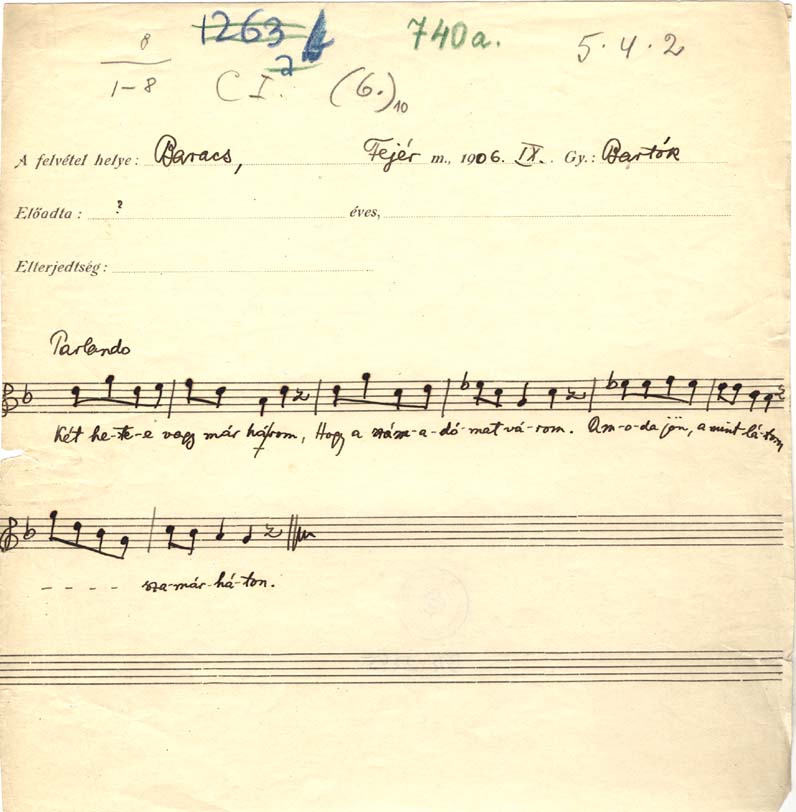 8 1263 740a. 5.4.2
1-8 C I. 2 (6.) 10
A felvétel helye: Baracs, Fejér m., 1906. IX. Gy.: Bartók
Előadta: ? éves,
Elterjedtség:
Parlando
Két he-te-e vagy már három, Hogy a szám-a-dó-mat vá-rom. Am-o-da jön, a mint lá-tom
- - - - sza-már-há-ton.